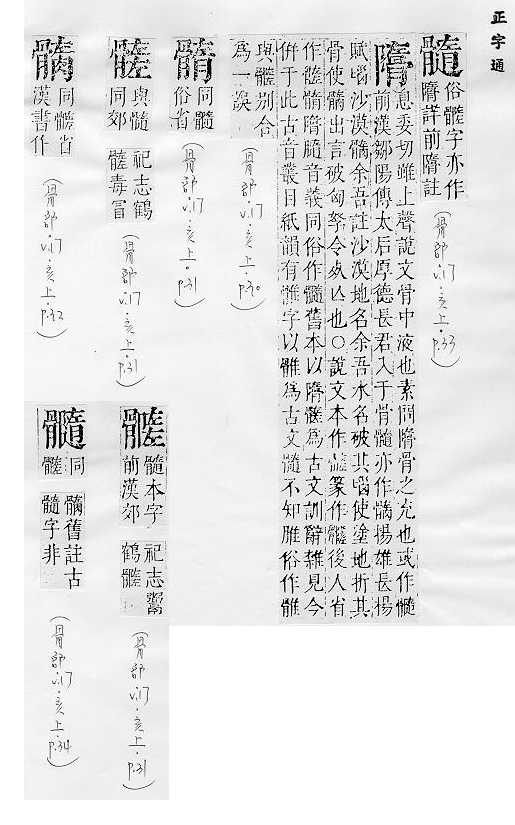 正字通
髓 俗髓字亦作
䯝詳前䯝註
(骨部v.17·亥上·p.33)
䯝 息委切雖上聲說文骨中液也素問䯝骨之充也或作髓
前漢鄒陽傳太后厚德長君入于骨髓亦作䯝揚雄長楊
賦腦沙漠䯝余吾註沙漠地名余吾水名破其腦使塗地折其
骨使䯝出言破匈奴令死亾也○說文本作䯝篆作髓後人省
作髓䯝膸音義同俗作髓舊本以䯝髓為古文訓辭雜見今
併于此古音叢目紙韻有雖字以雖為古文髓不知雖俗作雖
與髓別合
為一誤
(骨部v.17·亥上·p.30)
同髓
俗省
(骨部v.17·亥上·p.31)
與髓
同郊
祀志鶴
髓毒冒
(骨部v.17·亥上·p.31)
同髓省
漢書作
(骨部v.17·亥上·p.32)
髓本字
前漢郊
祀志鬻
鶴髓
(骨部v.17·亥上·p.31)
同
舊註古
髓字非
(骨部v.17·亥上·p.34)